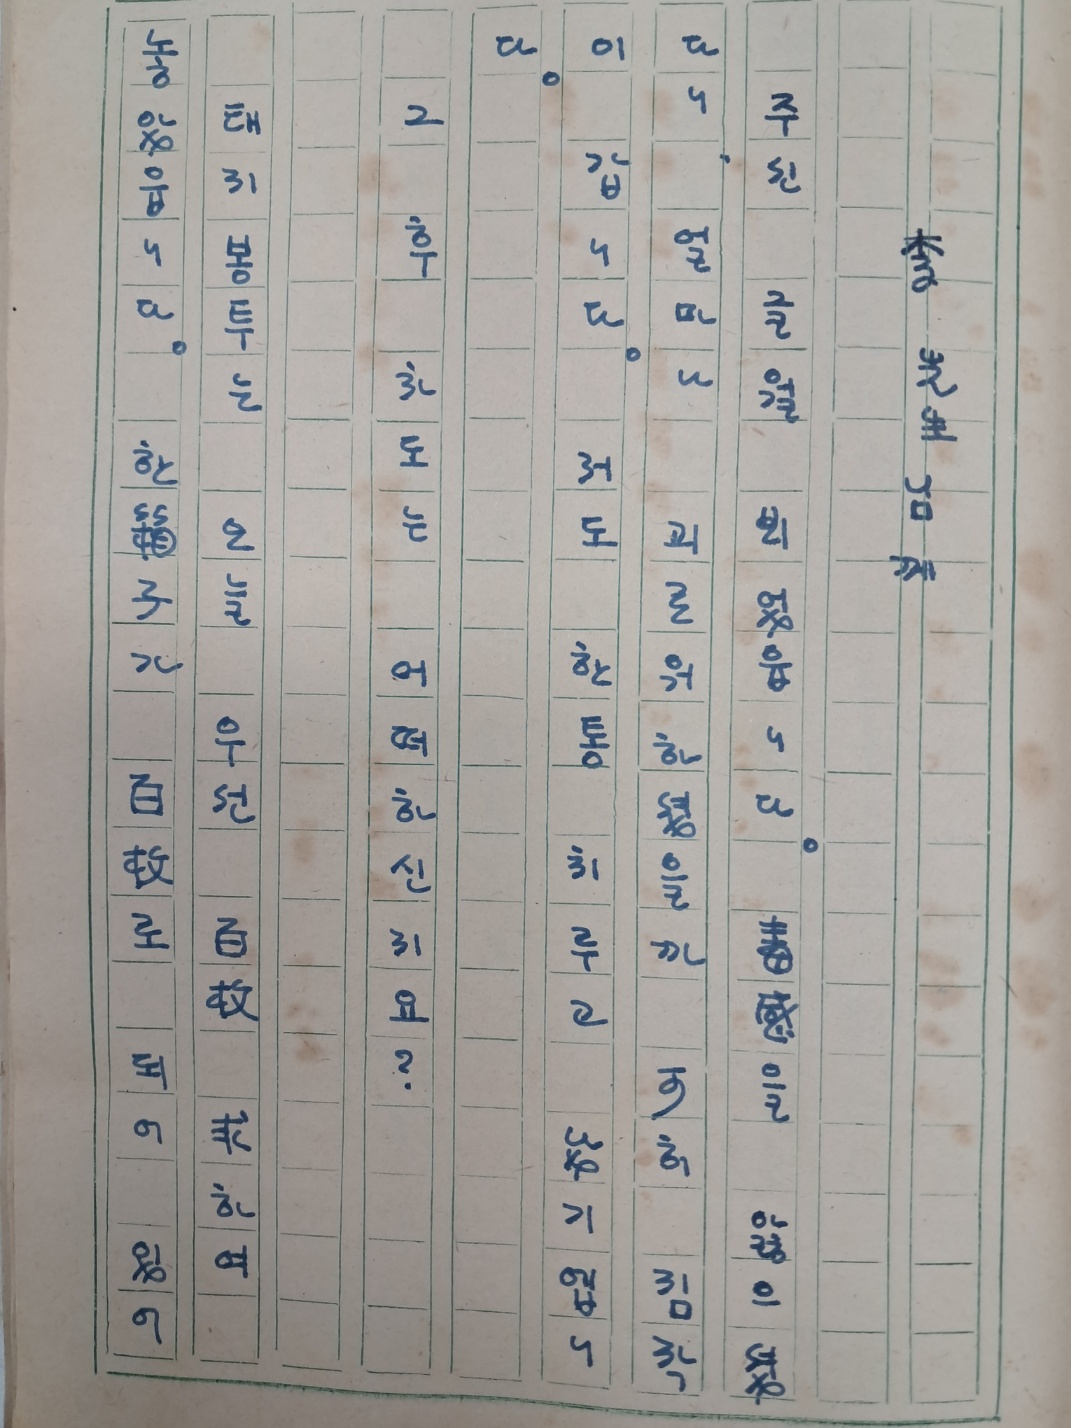 주신 글월 뵈었읍니다。 毒感을 앓이셨
다니, 얼마나 괴로워하셨을까 가히 짐작
이 갑니다。 저도 한통 치루고 났기 업니
다。
그 후 차도는 어떠하신지요?
택지봉투는 오늘 우선 百枚 求하여
놓았읍니다。 한 百枚로 되어 있어